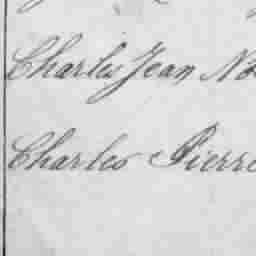 Charles Jean No
Charles Pierre